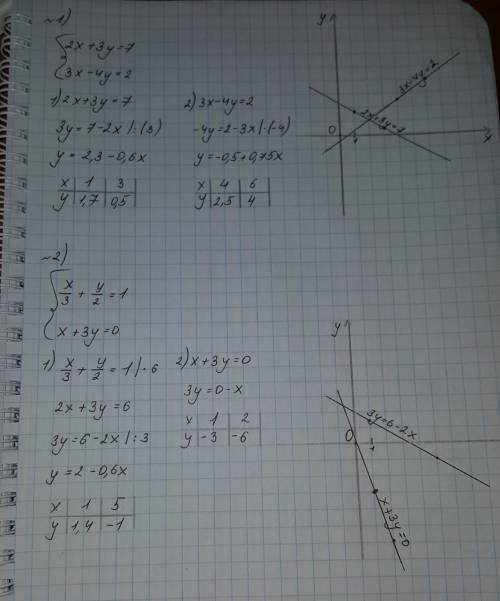 №1)
{2x+3y=7
3x-4y=2
1) 2x+3y=7
3y=7-2x |:(3)
y=2,3-0,6x
x | 1 | 3
y | 1,7 | 0,5
2) 3x-4y=2
-4y=2-3x |:(-4)
y=-0,5+0,75x
x | 4 | 6
y | 2,5 | 4
y
3x-4y=2
2x+3y=7
0 1 x
№2)
{x/3 + y/2 = 1
x+3y=0
1) x/3 + y/2 = 1 |·6
2x+3y=6
3y=6-2x |:3
y=2-0,6x
x | 1 | 5
y | 1,4 | -1
2) x+3y=0
3y=0-x
x | 1 | 2
y | -3 | -6
y
3y=6-2x
0 1
x+3y=0